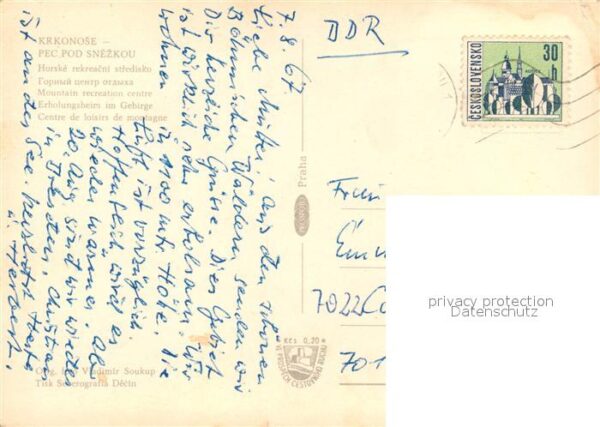 KRKONOŠE –
PEC POD SNĚŽKOU
Horské rekreační středisko
Горный центр отдыха
Mountain recreation centre
Erholungsheim im Gebirge
Centre de loisirs de montagne
7.8.67
Liebe Mutter! Aus den schönen
Böhmischen Wäldern senden wir
Dir herzliche Grüße. Dies Gebiet
ist wirklich sehr erholsam. Wir
wohnen in 1100 mtr Höhe. Die
Luft ist vorzüglich.
Hoffentlich wird es
wieder warmer. Ab
20. Aug. sind wir wieder
in Dresden. Christian
ist an der See. Herzlichst Herta
u. Herbert.
Orig. Vladimír Soukup
Tisk Severografia Děčín
Praha
Kčs 0,20
DDR
ČESKOSLOVENSKO
30
h
7022
701
privacy protection
Datenschutz